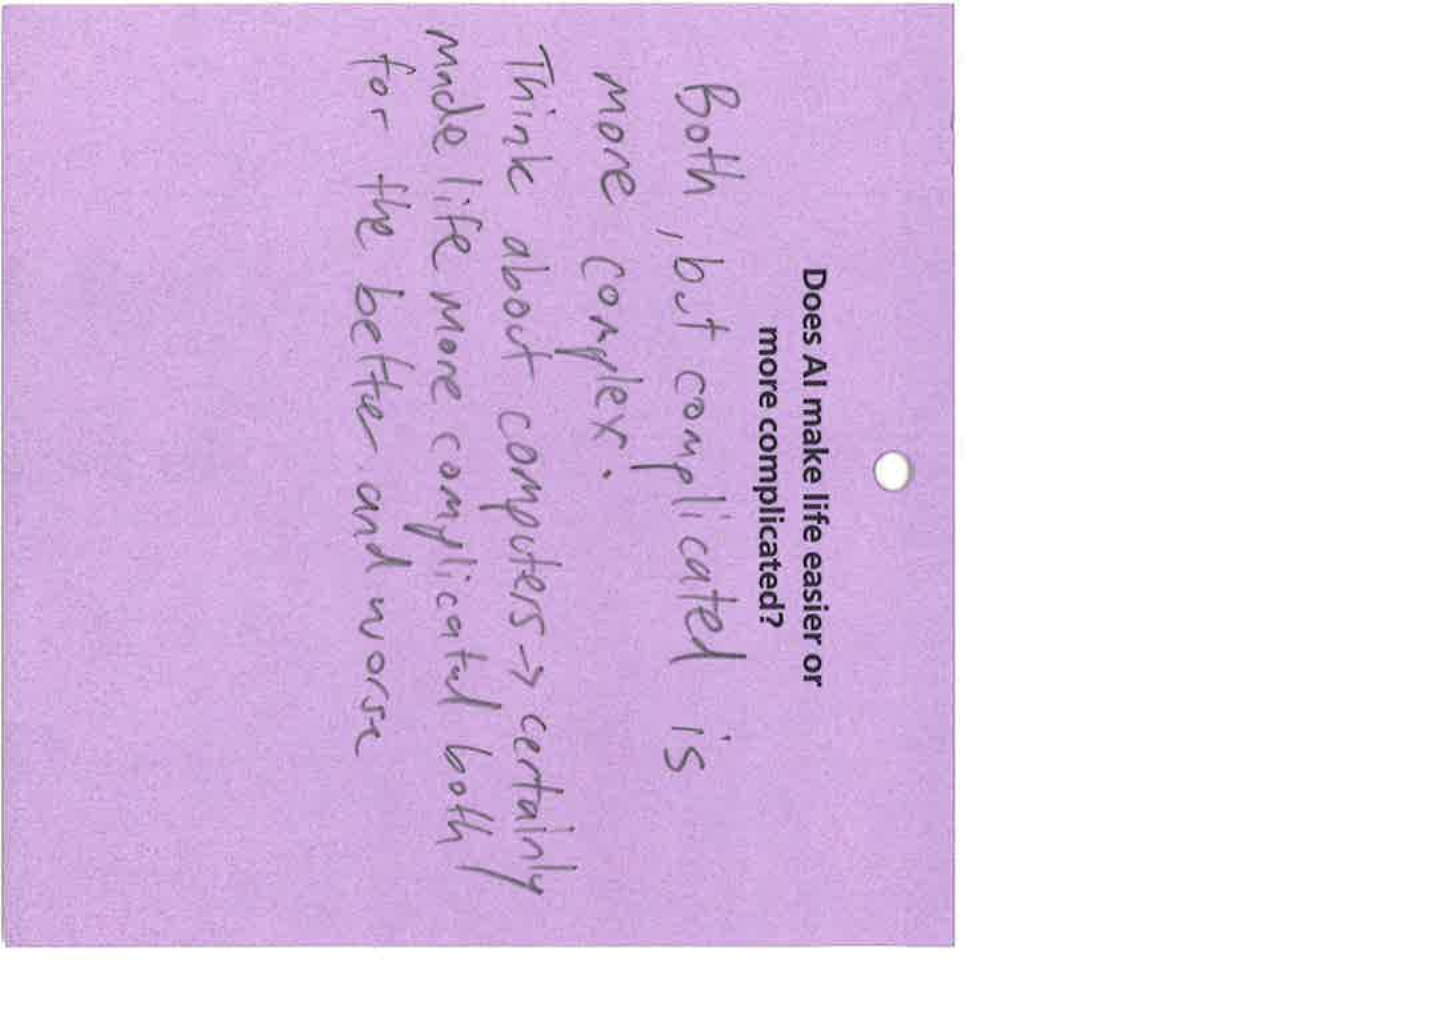 Does AI make life easier or
more complicated?
Both, but complicated is
more complex.
Think about computers → certainly
made life more complicated both
for the better and worse